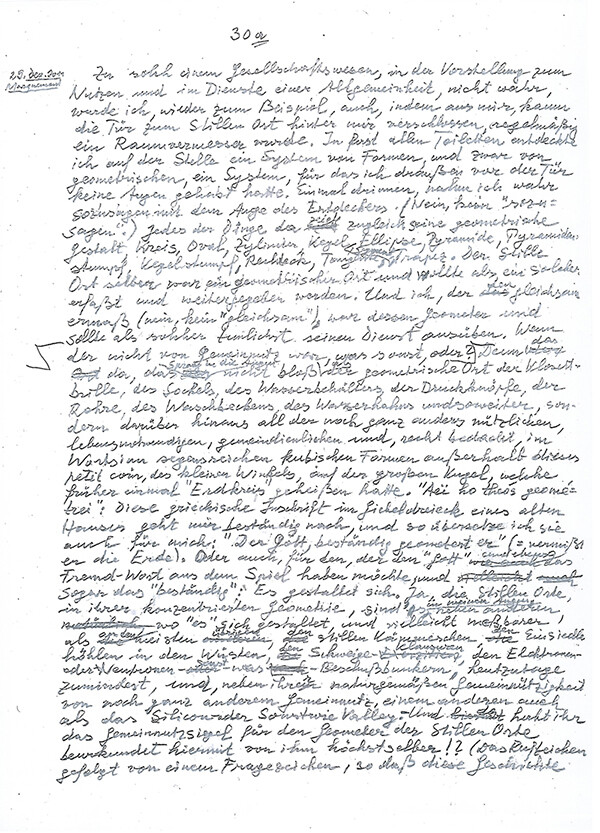 30a
25. Dez. 2011
Zu solch einem Gesellschaftswesen, in der Vorstellung zum
Nutzen und im Dienste einer Allgemeinheit, nicht wahr,
wurde ich, wieder zum Beispiel, auch, indem aus mir, kaum
die Tür zum Stillen Ort hinter mir verschlossen, regelmäßig
ein Raumvermesser wurde. In fast allen Toiletten entdeckte
ich auf der Stelle ein System von Formen, und zwar von
geometrischen, ein System, für das ich draußen vor der Tür
keine Augen gehabt hatte. Einmal drinnen, nahm ich wahr
sozusagen mit dem Auge des Entdeckers. (Nein, kein "sozu=
sagen".) Jedes der Dinge da zugleich seine geometrische
Gestalt Kreis, Oval, Zylinder, Kegel, Ellipse, Pyramide, Pyramiden=
stumpf, Kegelstumpf, Rechteck, Trapez. Der Stille
Ort selber war ein geometrischer Ort und wollte als ein solcher
erfaßt und weitergegeben werden. Und ich, der den gleichsam
ermaß (nein, kein "gleichsam"), war dessen Geometer und
sollte als solcher tunlichst seinen Dienst ausüben. Wenn
der nicht von Gemeinnutz war, was sonst, oder? Denn das
da, das sprang in die Augen nicht bloß die geometrische Ort der Klosett=
brille, des Sockels, des Wasserbehälters, der Druckknöpfe, der
Rohre, des Waschbeckens, des Wasserhahns undsoweiter, son=
dern darüber hinaus all der noch ganz anders nützlichen,
lebensnotwendigen, gemeindienlichen und, recht bedacht, im
Wortsinn segensreichen kubischen Formen außerhalb dieses
petit coin, des kleinen Winkels, auf der großen Kugel, welche
früher einmal "Erdkreis" geheißen hatte. "Aei ho theos geomé=
trei": Diese griechische Inschrift im Giebeldreieck eines alten
Hauses geht mir beständig nach, und so übersetze ich sie
auch für mich: "Der Gott, beständig geometert er" (= vermißt
er die Erde). Oder auch, für den, der den "Gott" das
Fremd-Wort aus dem Spiel haben möchte, und
sogar das "beständig": Es gestaltet sich. Ja, die Stillen Orte,
in ihrer konzentrierten Geometrie, sind in meinen Augen
wo "es" sich gestaltet, und vielleicht meßbarer,
als die meisten den stillen Kämmerchen, Einsiedler=
höhlen in den Wüsten, den Schweige-Klausuren, den Elektronen=
oder Neutronen- sonst was -Beschußbunkern, heutzutage
zumindest, und, neben ihrer naturgemäßen Gemeinnützigkeit
von noch ganz anderem Gemeinnutz, einem anderen auch
als das "Silicon oder Sonstwie Valley". Und habt ihr
das Gemeinnutzsiegel für den Geometer der Stillen Orte
beurkundet hiermit von ihm höchstselber!? (Das Rufzeichen
gefolgt von einem Fragezeichen, so daß diese Geschichte